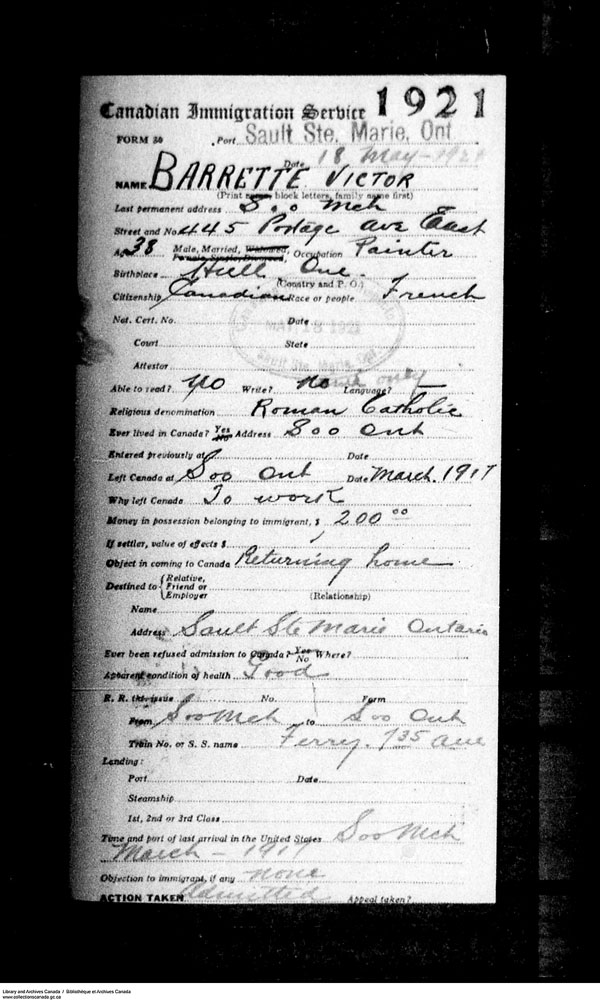 Canadian Immigration Service 1921
FORM 30 Port Sault Ste. Marie, Ont
Date 18 May - 1921
NAME BARRETTE VICTOR
(Print name, block letters, family name first)
Last permanent address Soo Mch
Street and No. 445 Portage Ave East
Age 38 Male, Married, Widowed, Occupation Painter
Female, Single, Divorced,
Birthplace Hull, Que.
(Country and P. O.)
Citizenship Canadian Race or people French
Nat. Cert. No. Date
Court State
Attestor
Able to read? Write? no Language? only
Religious denomination Roman Catholic
Ever lived in Canada? Yes No Address Soo Ont
Entered previously at Date
Left Canada at Soo Ont Date March. 1917
Why left Canada To work
Money in possession belonging to immigrant, $ 200 00
If settler, value of effects $
Object in coming to Canada Returning home
Destined to { Relative, Friend or Employer (Relationship)
Name
Address Sault Ste Marie Ontario
Ever been refused admission to Canada? Yes No Where?
Apparent condition of health Good
R. R. tkt. issue No. Form
From Soo Mch to Soo Ont
Train No. or S. S. name Ferry. 7 35
Landing:
Port Date
Steamship
1st, 2nd or 3rd Class
Time and port of last arrival in the United States Soo Mch
March - 1917
Objection to immigrant, if any none
ACTION TAKEN Admitted Appeal taken?
Library and Archives Canada / Bibliothèque et Archives Canada
www.collectionscanada.gc.ca